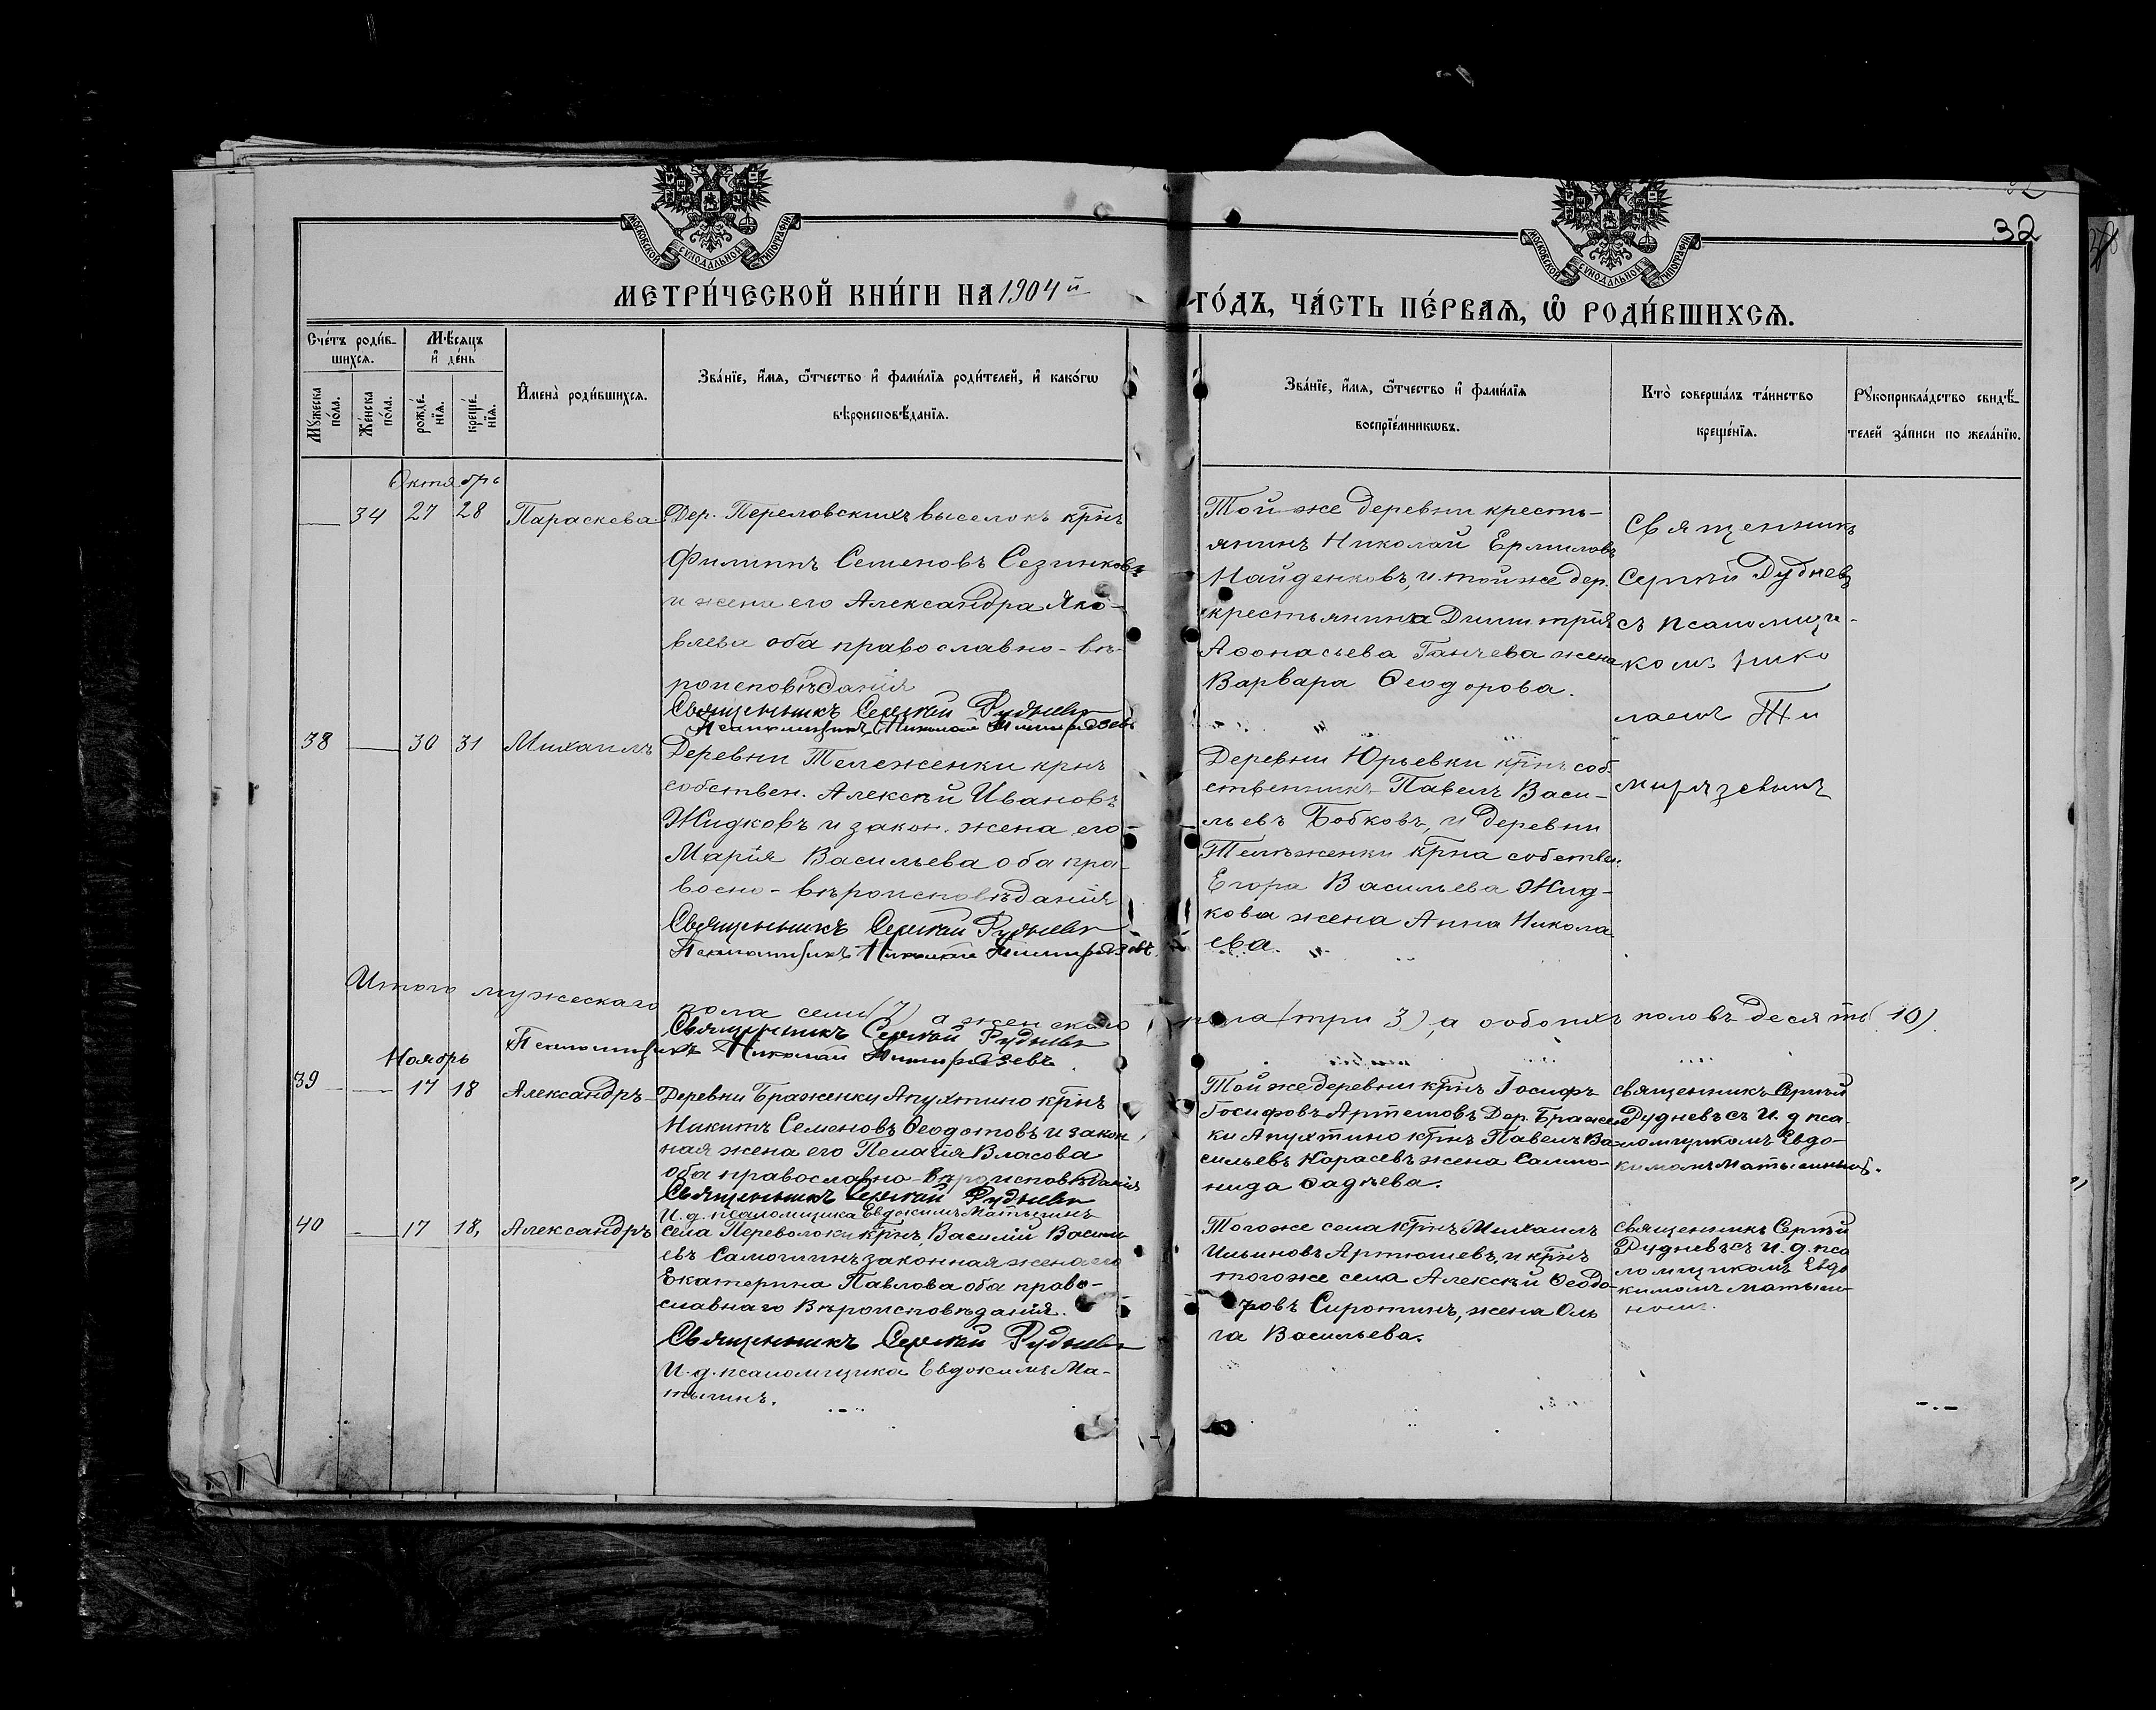 32
МОСКОВСКОЙ СѴНОДАЛЬНОЙ ТИПОГРАФІИ
МОСКОВСКОЙ СѴНОДАЛЬНОЙ ТИПОГРАФІИ
МЕТРИ́ЧЕСКОЙ КНИ́ГИ НА 1904й ГО́ДЪ, ЧА́СТЬ ПЕ́РВАѦ, Ѡ҆ РОДИ́ВШИХСѦ.
Сче́тъ роди́в-
шихсѧ.
Мꙋжеска по́ла.
Же́нска по́ла.
Мѣ́сѧцъ
и҆ де́нь
рожде́-
нїѧ.
креще́-
нїѧ.
И҆мена̀ роди́вшихсѧ.
Зва́нїе, и҆́мѧ, ѻ҆́тчество и҆ фами́лїѧ роди́телей, и҆ како́гѡ
вѣроисповѣ́данїѧ.
Зва́нїе, и҆́мѧ, ѻ҆́тчество и҆ фами́лїѧ
воспрїе́мникѡвъ.
Кто̀ соверша́лъ та́инство
креще́нїѧ.
Рꙋкоприкла́дство свидѣ́-
телей за́писи по жела́нїю.
Октябрь
34 27 28 Параскева
Дер. Переловскихъ выселокъ крнъ
Филиппъ Семеновъ Сезинковъ
и жена его Александра Яко-
влева оба православно-вѣ-
роисповѣданія
Священникъ Сергѣй Рудневъ
Псаломщикъ Николай Тимирязевъ
Той же деревни кресть-
янинъ Николай Ермиловъ
Найденковъ, и той же дер.
крестьянина Димитрія
Аѳонасьева Ганчева жена
Варвара Ѳеодорова.
Священникъ
Сергѣй Рудневъ
съ псаломщи-
комъ Нико
лаемъ Ти
мирязевымъ
38 30 31 Михаилъ
Деревни Тележенки крнъ
собствен. Алексѣй Ивановъ
Жидковъ и закон. жена его
Марія Васильева оба пра-
восно-вѣроисповѣданія
Священникъ Сергѣй Рудневъ
Псаломщикъ Николай Тимирязевъ
Деревни Юрьевки крнъ соб-
ственникъ Павелъ Васи-
льевъ Бобковъ, и деревни
Тележенки крна собствен.
Егора Васильева Жид-
кова жена Анна Никола
ева.
Итого мужескаго пола семь (7) а женскаго пола (три 3), а обоихъ половъ десять (10).
Священникъ Сергѣй Рудневъ
Псаломщикъ Николай Тимирязевъ
Ноябрь
39 17 18 Александръ
Деревни Браженки Апухтино крнъ
Никитъ Семеновъ Ѳеодотовъ и закон
ная жена его Пелагія Власова
оба православно-вѣроисповѣданія
Священникъ Сергѣй Рудневъ
И. д. псаломщика Евдокимъ Матыгинъ
Той же деревни крнъ Іосифъ
Іосифовъ Артемовъ Дер. Бражен
ки Апухтино крнъ Павелъ Ва-
сильевъ Карасевъ жена Салмо-
нида Ѳадѣева.
священникъ Сергѣй
Рудневъ съ И. д. пса-
ломщикомъ Евдо-
40 17 18, Александръ
села Переволоки крнъ Василій Василь
евъ Самошинъ законная жена его
Екатерина Павлова оба право-
славнаго Вѣроисповѣданія.
Священникъ Сергѣй Рудневъ
И. д. псаломщика Евдокимъ Ма-
тыгинъ.
Того же села крнъ Михаилъ
Ильиновъ Артюшевъ, и крнъ
того же села Алексѣй Ѳеодо-
ровъ Сиротинъ, жена Оль
га Васильева.
священникъ Сергѣй
Рудневъ съ И. д. пса
ломщикомъ Евдо